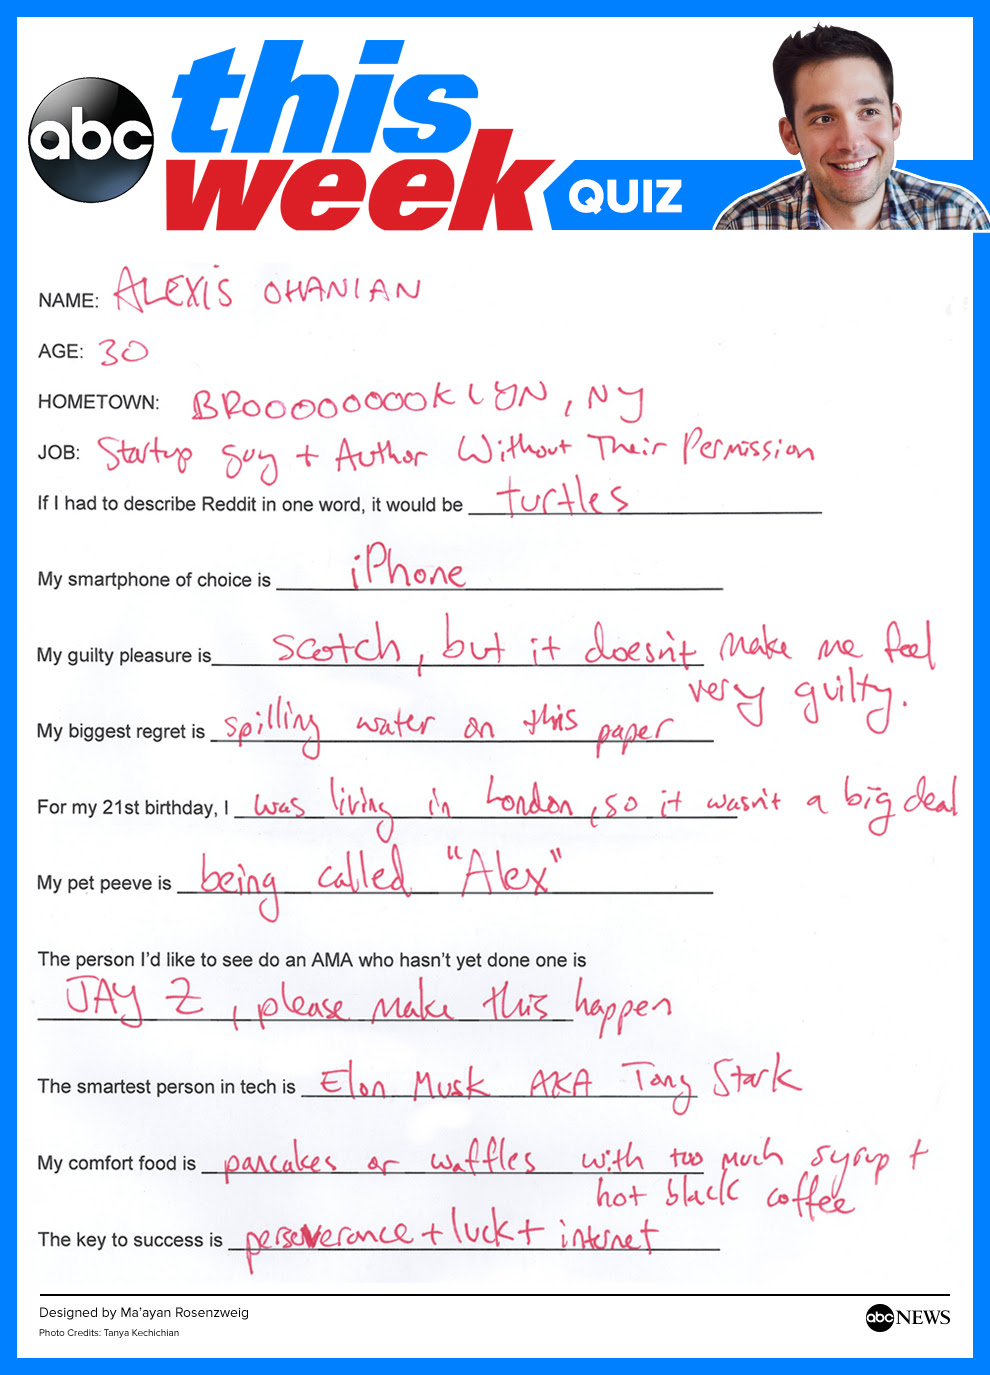 abc
this
week
QUIZ
NAME: ALEXIS OHANIAN
AGE: 30
HOMETOWN: BROOOOOOOOKLYN, NY
JOB: Startup guy + Author Without Their Permission
If I had to describe Reddit in one word, it would be turtles
My smartphone of choice is iPhone
My guilty pleasure is scotch, but it doesn't make me feel
very guilty.
My biggest regret is spilling water on this paper
For my 21st birthday, I was living in London, so it wasn't a big deal
My pet peeve is being called "Alex"
The person I'd like to see do an AMA who hasn't yet done one is
JAY Z, please make this happen
The smartest person in tech is Elon Musk AKA Tony Stark
My comfort food is pancakes or waffles with too much syrup +
hot black coffee
The key to success is perseverance + luck + internet
Designed by Ma'ayan Rosenzweig
Photo Credits: Tanya Kechichian
abc NEWS